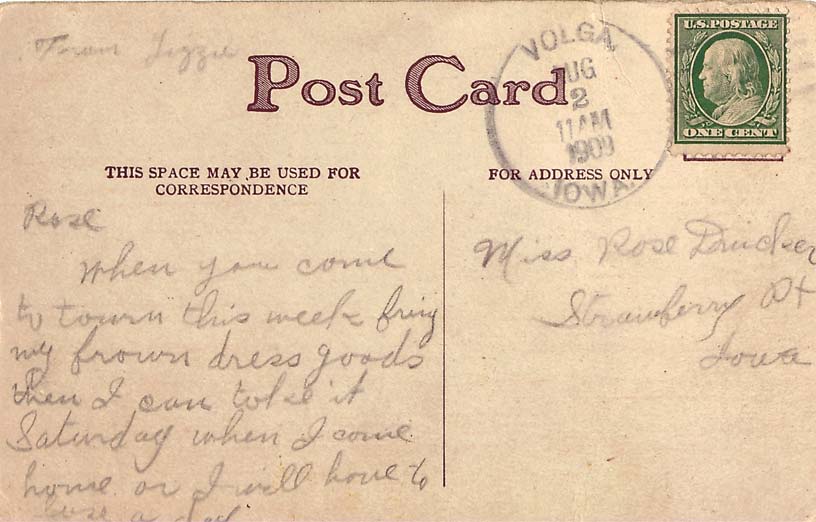 From Lizzie
Post Card
VOLGA
AUG
2
11 AM
1909
IOWA
U.S. POSTAGE
ONE CENT
THIS SPACE MAY BE USED FOR
CORRESPONDENCE
FOR ADDRESS ONLY
Rose
When you come
to town this week bring
my brown dress goods
then I can take it
Saturday when I come
home or I will have to
lose a
Miss Rose
Strawberry Pt
Iowa